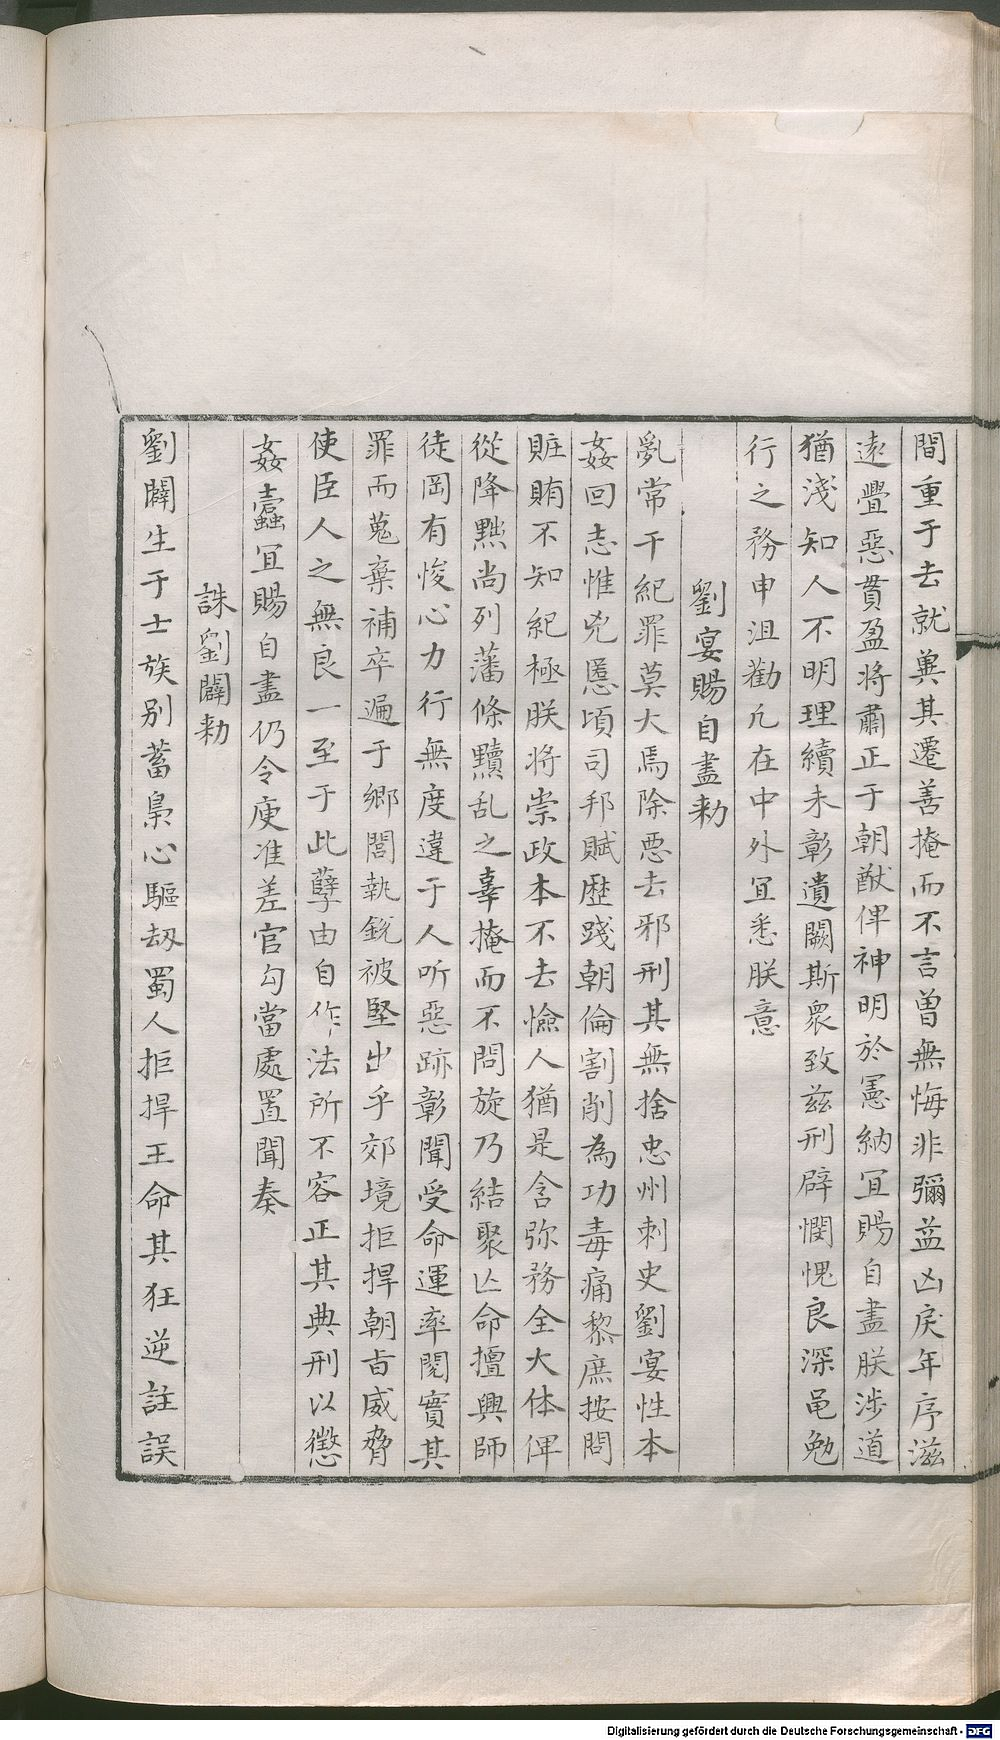 間重于去就兾其遷善掩而不言曽無悔非彌益凶戾年序滋
遠舋惡貫盈将肅正于朝猷俾神明於憲納冝賜自盡朕涉道
猶淺知人不明理續未彰遺闕斯衆致兹刑辟憫愧良深邑勉
行之務申沮勸凢在中外冝悉朕意
劉宴賜自盡勑
亂常干紀罪莫大焉除惡去邪刑其無捨忠州刺史劉宴性本
姦回志惟兇慝頃司邦賦歷踐朝倫割削為功毒痛黎庶按問
賍賄不知紀極朕将崇政本不去憸人猶是含弥務全大体俾
從降黜尚列藩條黷乱之辜掩而不問旋乃結聚亾命擅興師
徒罔有悛心力行無度違于人听惡跡彰聞受命運率閱實其
罪而蒐棄補卒遍于鄉閭執銳被堅出乎郊境拒捍朝㫖威脅
使臣人之無良一至于此孽由自作法所不容正其典刑以懲
姦蠹冝賜自盡仍令庾准差官勾當處置聞奏
誅劉闢勑
劉闢生于士族别蓄梟心驅刼蜀人拒捍王命其狂逆詿誤
Digitalisierung gefördert durch die Deutsche Forschungsgemeinschaft - DFG